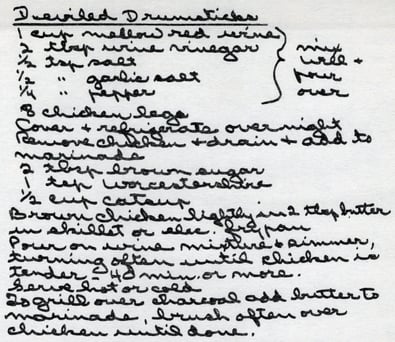 Deviled Drumsticks
1 cup mellow red wine
2 tbsp wine vinegar
1/2 tsp salt
1/2 " garlic salt
1/4 " pepper
mix
well +
pour
over
8 chicken legs
Cover + refrigerate overnight
Remove chicken + drain + add to
marinade
2 tbsp brown sugar
1 tsp worcestershire
1/2 cup catsup
Brown chicken lightly in 2 tbsp butter
in skillet or elec. frypan
Pour on wine mixture + simmer,
turning often until chicken is
tender - 40 min. or more.
Serve hot or cold
To grill over charcoal add butter to
marinade, brush often over
chicken until done.